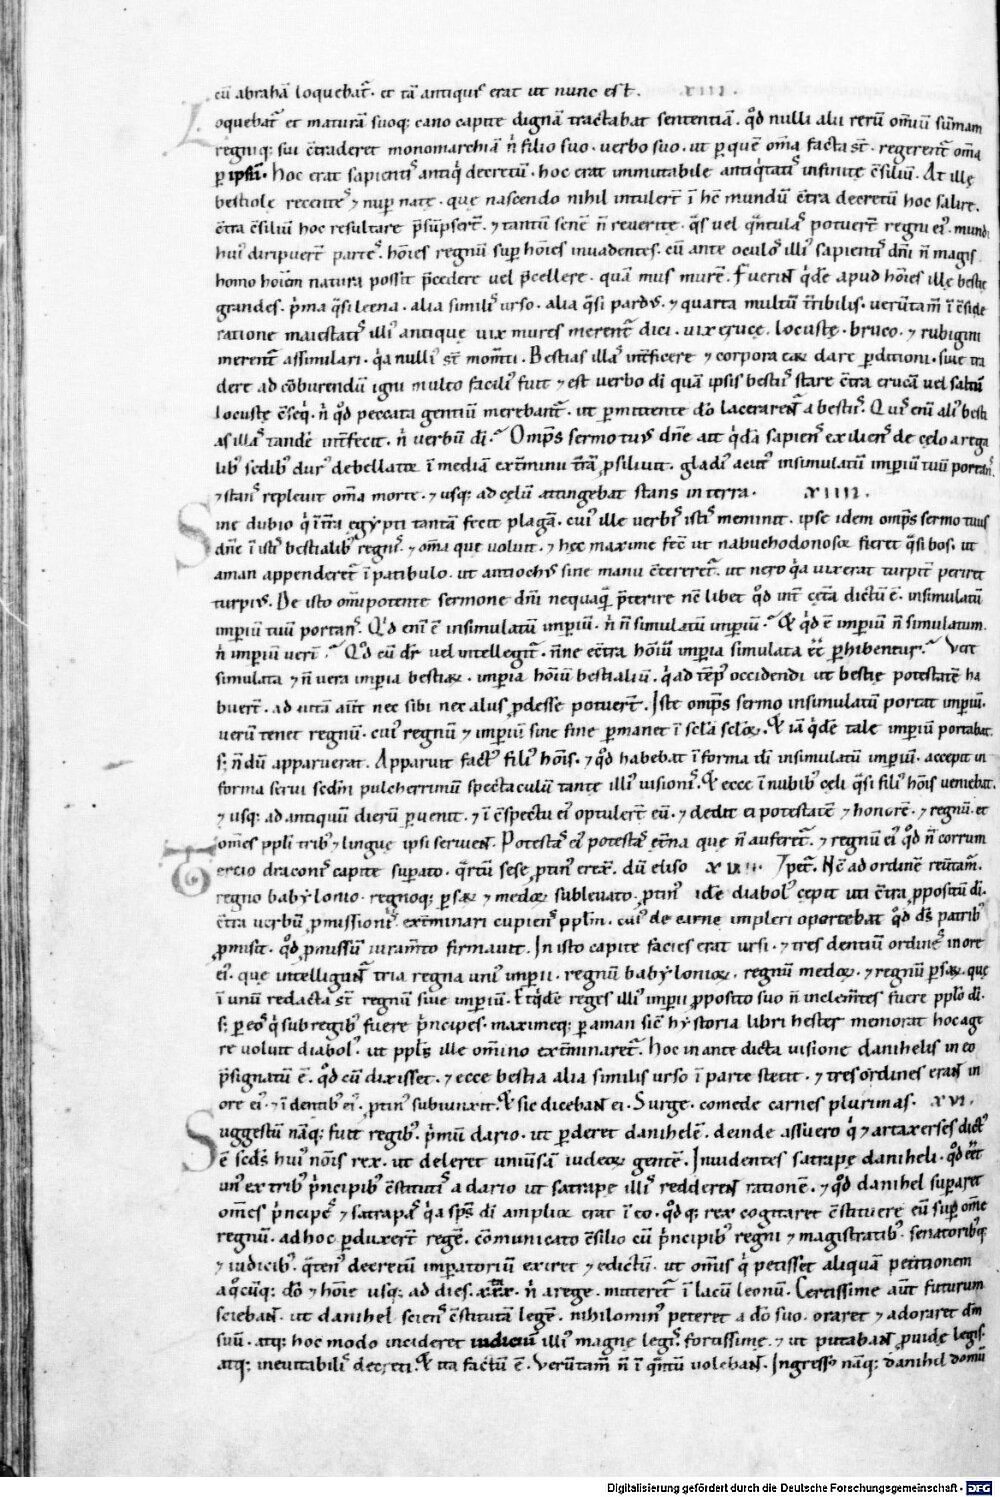 cū abrahā loquebat᷑. et tā antiquꝰ erat ut nunc est. XIII.
Loquebat᷑ et maturā suoq; cano capite dignā tractabat sententiā. qđ nulli alii rerū om̄iū sūmam
regniq; sui c̄traderet monomarchiā n̄ filio suo. verbo suo. ut ꝑ quē om̄a facta st̄. regerent᷑ om̄a
ꝑ ipsū. hoc erat sapientis antiq̇ decretū. hoc erat immutabile antiq̇tatis infinitę c̄siliū. At illę
bestiolę recentes ⁊ nuꝑ natę. quę nascendo nihil intulert̄ ī hc̄ mundū c̄tra decretū hoc salire.
c̄tra c̄siliū hoc resultare p̄sūpsert̄. ⁊ tantū senē n̄ reveritę. q̄s vel q̄ntulas potuert̄ regni eiꝰ. mundi
huiꝰ diripuert̄ partes. hōies regnū suꝑ hōies invadentes. cū ante oculos illiꝰ sapientis dn̄i n̄ magis
homo hoīem natura possit p̄cedere vel p̄cellere. quā mus murē. Fuerint q̇dē apud hōies illę bestię
grandes. p̄ma q̄si leena. alia similis urso. alia q̄si pardꝰ. ⁊ quarta multū tr̄ibilis. verūtam̄ ī c̄side
ratione maiestatis illiꝰ antiquę vix mures merent᷑ dici. vix erucę. locustę. bruco. ⁊ rubigini
merent᷑ assimulari. q̇a nulliꝰ st̄ mom̄ti. Bestias illas int̄ficere ⁊ corpora eaꝝ dare ꝑditioni. sive tra
dere ad cōburendū igni multo faciliꝰ fuit ⁊ est verbo di quā ipsis bestiis stare c̄tra erucā vel saltū
locustę c̄seq̇. n̄ qđ peccata gentiū merebant᷑. ut ꝑmittente dō lacerarent᷑ a bestiis. Quis eni aliꝰ besti
as illas tandē int̄fecit. n̄ verbū di. Omp̄s sermo tuꝰ dn̄e ait q̇dā sapiens exiliens de cęlo a rega
libꝰ sedibꝰ durꝰ debellator ī mediā ext̄minii tr̄ā ꝓsiliuit. gladiꝰ acutꝰ insimulatū imperiū tuū portans.
⁊ stans replevit om̄a morte. ⁊ usq; ad cęlū attingebat stans in terra. XIIII.
Sine dubio q̇ ī tr̄a egypti tantā fecit plagā. cuiꝰ ille verbis istis meminit. ipse idem omp̄s sermo tuus
dn̄e ī istis bestialibꝰ regnis. ⁊ om̄a que voluit. ⁊ hęc maxime fec̄ ut nabuchodonosor fieret q̄si bos. ut
aman appenderet᷑ ī patibulo. ut antiochꝰ sine manu c̄tereret᷑. ut nero q̇a vixerat turpit̄ periret
turpiꝰ. De isto om̄ipotente sermone dn̄i nequaq̄ p̄terire nc̄ libet qđ int̄ cęt̄a dictū ē. insimulatū
imꝑiū tuū portans. Q'd eni ē insimulatū imꝑiū. n̄ n̄ simulatū imꝑiū. Et q̇d ē imꝑiū n̄ simulatum.
n̄ imꝑiū verū. Qd cū dr̄ vel intellegit᷑. n̄ne ec̄tra hōiū imꝑia simulata ec̄ ꝑhibentur. Vere
simulata ⁊ n̄ vera imꝑia bestiaꝝ. imꝑia hōiū bestialiū. q̇ ad tēpꝰ occidendi ut bestię potestatē ha
buert̄. ad vitā aut̄ nec sibi nec aliis ꝓdesse potuert̄. Iste omp̄s sermo insimulatū portat imꝑiū.
verū tenet regnū. cuiꝰ regnū ⁊ imꝑiū sine fine ꝑmanet ī sc̄la sc̄loꝝ. Et iā q̇dē tale imꝑiū portabat.
s; n̄dū apparuerat. Apparuit factꝰ filiꝰ hōis. ⁊ qđ habebat ī forma di insimulatū imꝑiū. accepit in
forma servi scdm̄ pulcherrimū spectaculū tantę illiꝰ visionis. Et ecce ī nubibꝰ cęli q̄si filiꝰ hōis veniebat.
⁊ usq; ad antiquū dierū ꝑvenit. ⁊ ī c̄spectu eiꝰ optulert̄ eū. ⁊ dedit ei potestatē ⁊ honorē. ⁊ regnū. et
om̄es ppl̄i tribꝰ ⁊ linguę ipsi servient. Potestas eiꝰ potestas et̄na que n̄ auferet᷑. ⁊ regnū eiꝰ qđ n̄ corrum
Tercio draconis capite superato. q̄rtū sese ꝓtinꝰ erexit. dū eliso XV. pet᷑. Nc̄ ad ordinē reūtam̄.
regno babylonio. regnoq; ꝑsaꝝ ⁊ medoꝝ sublevato. ꝓtinꝰ idē diabolꝰ cępit uti c̄tra ꝓpositū di.
c̄tra verbū ꝓmissionis. ext̄minari cupiens ppl̄m. cuiꝰ de carne impleri oportebat qđ ds̄ patribꝰ
ꝓmisit. qđ ꝓmissū iuram̄to firmavit. In isto capite facies erat ursi. ⁊ tres dentiū ordines in ore
eiꝰ. quę intelligunt᷑ tria regna uniꝰ imperii. regnū babylonioꝝ. regnū medoꝝ. ⁊ regnū ꝑsaꝝ. quę
ī unū redacta st̄ regnū sive imperiū. Et q̇dē reges illiꝰ imꝑii ꝓposito suo n̄ inclem̄tes fuere pplo di.
s; ꝑ eos q̇ sub regibꝰ fuere p̄ncipes. maximeq; ꝑ aman sic̄ hystoria libri hester memorat hoc age
re voluit diabolꝰ. ut ppl̄s ille om̄ino ext̄minaret᷑. hoc in ante dicta visione danihelis in eo
p̄signatū ē. qđ cū dixisset. ⁊ ecce bestia alia similis urso ī parte stetit. ⁊ tres ordines erant in
ore eiꝰ. ⁊ ī dentibꝰ eiꝰ. ꝓtinꝰ subiunxit. Et sic dicebant ei. Surge. comede carnes plurimas. XVI.
Suggestū nāq; fuit regibꝰ. p̄mū dario. ut ꝑderet danihelē. deinde assuero q̇ ⁊ artaxerses dictꝰ
ē scds̄ huiꝰ nōis rex. ut deleret univsā iudeoꝝ gentē. Invidentes satrapę daniheli. qđ eēt
unꝰ ex tribꝰ p̄ncipibꝰ c̄stitutis a dario ut satrapę illis redderent rationē. ⁊ qđ danihel suꝑaret
om̄es p̄ncipes ⁊ satrapas q̇a sps̄ di amplior erat ī eo. qđq; rex cogitaret c̄stituere eū suꝑ om̄e
regnū. ad hoc ꝑduxert̄ regē. cōmunicato c̄silio cū p̄ncipibꝰ regni ⁊ magistratibꝰ. senatoribꝰq;
⁊ iudicibꝰ. q̄tenꝰ decretū imperatoriū exiret ⁊ edictū. ut om̄is q̇ petisset aliquā petitionem
a qocūq; dō ⁊ hoīe usq; ad dies. xxx. n̄ a rege. mitteret᷑ ī lacū leonū. Certissime aut̄ futurum
sciebant. ut danihel sciens c̄stitutā legē. nihilominꝰ peteret a dō suo. oraret ⁊ adoraret dm̄
suū. atq; hoc modo incideret iudiciū illiꝰ magnę legis fortissimę. ⁊ ut putabant ꝓvidę legis.
atq; inevitabilis decreti. Et ita factū ē. verūtam̄ n̄ ī q̄ntū volebant. Ingressꝰ nāq; danihel domū
Digitalisierung gefördert durch die Deutsche Forschungsgemeinschaft - DFG